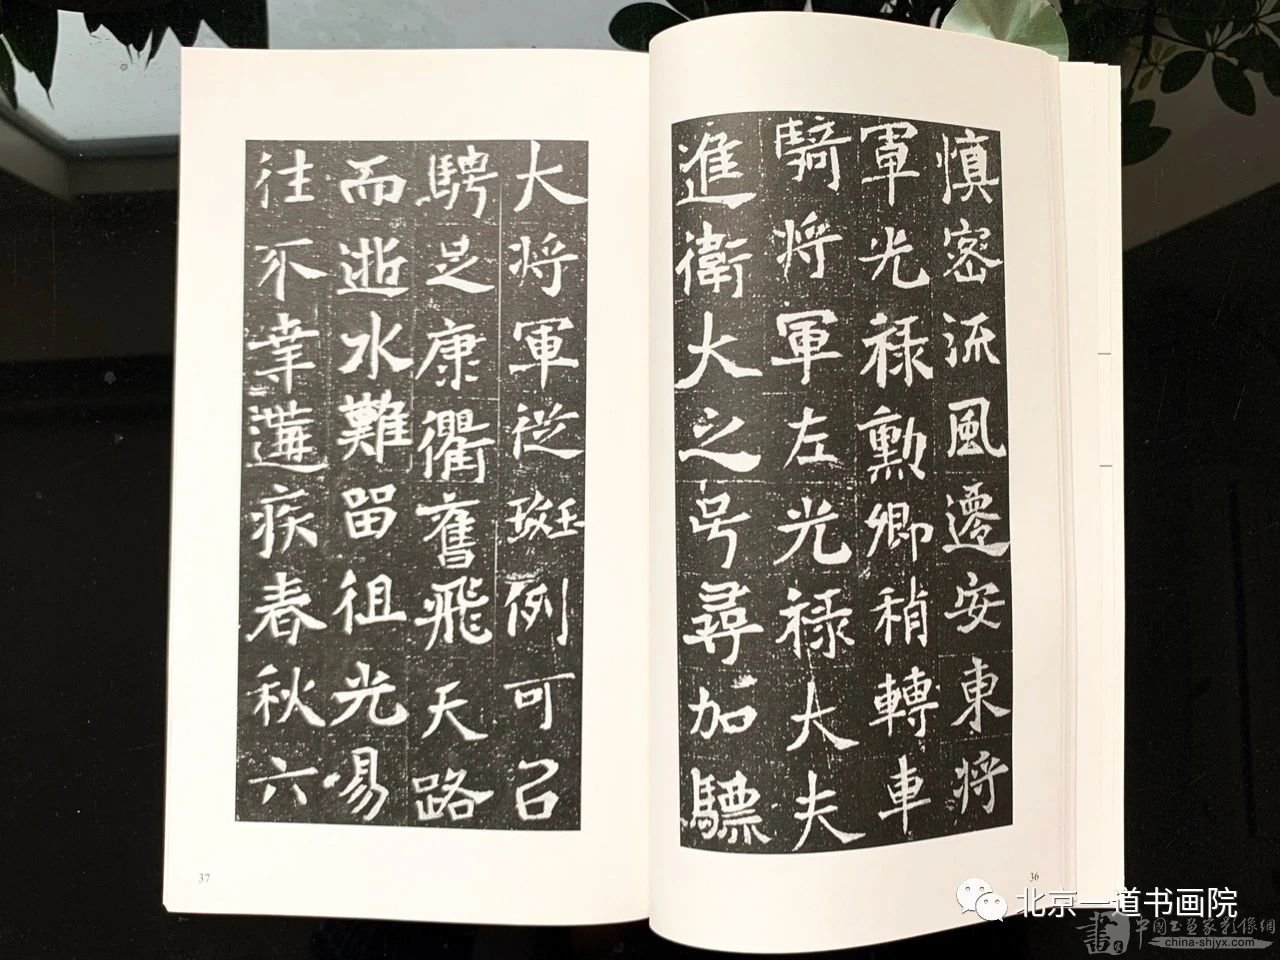 慎密流風遷安東將
軍光祿勲卿稍轉車
騎將軍左光祿大夫
進衛大之号尋加驃
36
大將軍從班例可召
騁足康衢奮飛天路
而逝水難留徂光易
往不幸遘疾春秋六
37
北京一道书画院
中国书画家影像網
china-shjyx.com